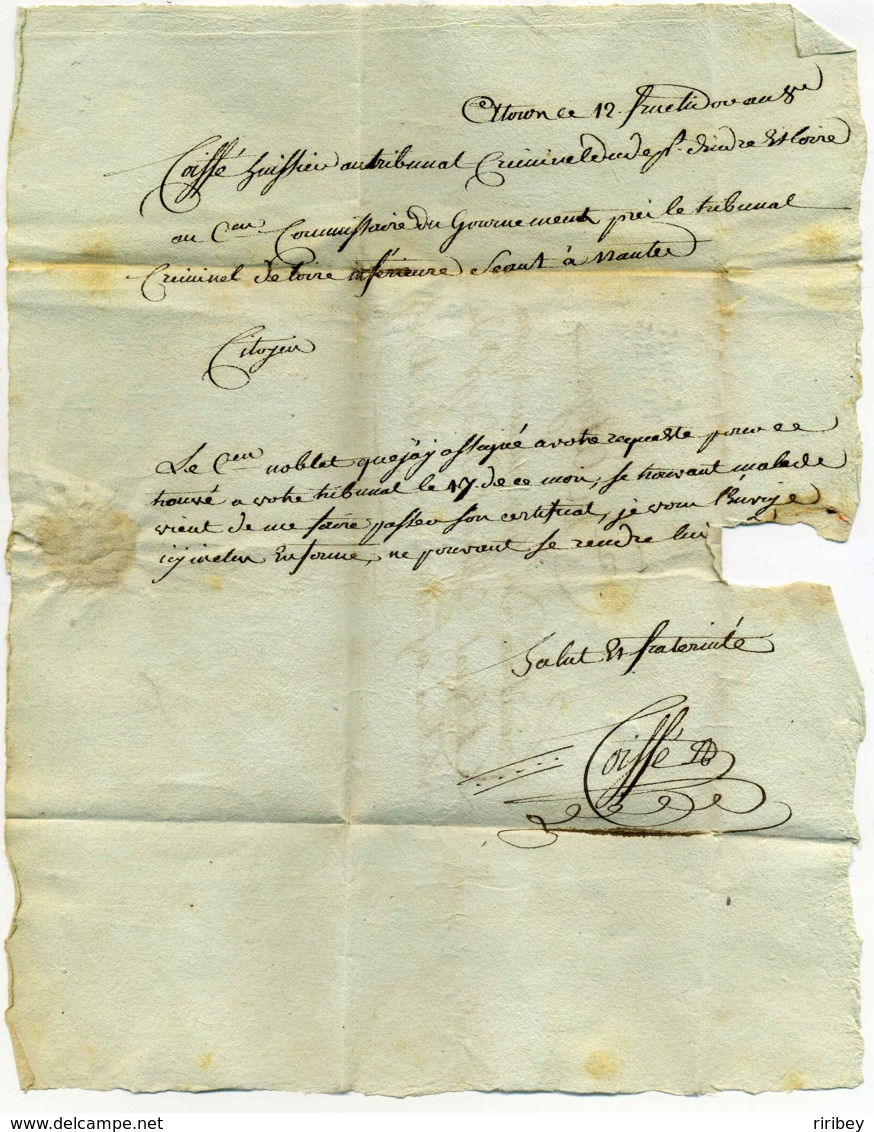 A tours ce 12. fructidor an 8e
Coiffé huissier au tribunal Criminel du dept. dindre Et loire
au Cen. Commissaire du Gouvernement près le tribunal
Criminel de loire inférieure séant à nantes
Citoyen
Le Cen noblet que j'ay assigné a votre requeste pour se
trouvé a votre tribunal le 17. de ce mois, se trouvant malade
vient de me faire passer son certificat, je vous l'Envoye
icy inclus En forme, ne pouvant se rendre lui
Salut Et fraternité
Coiffé
riribey